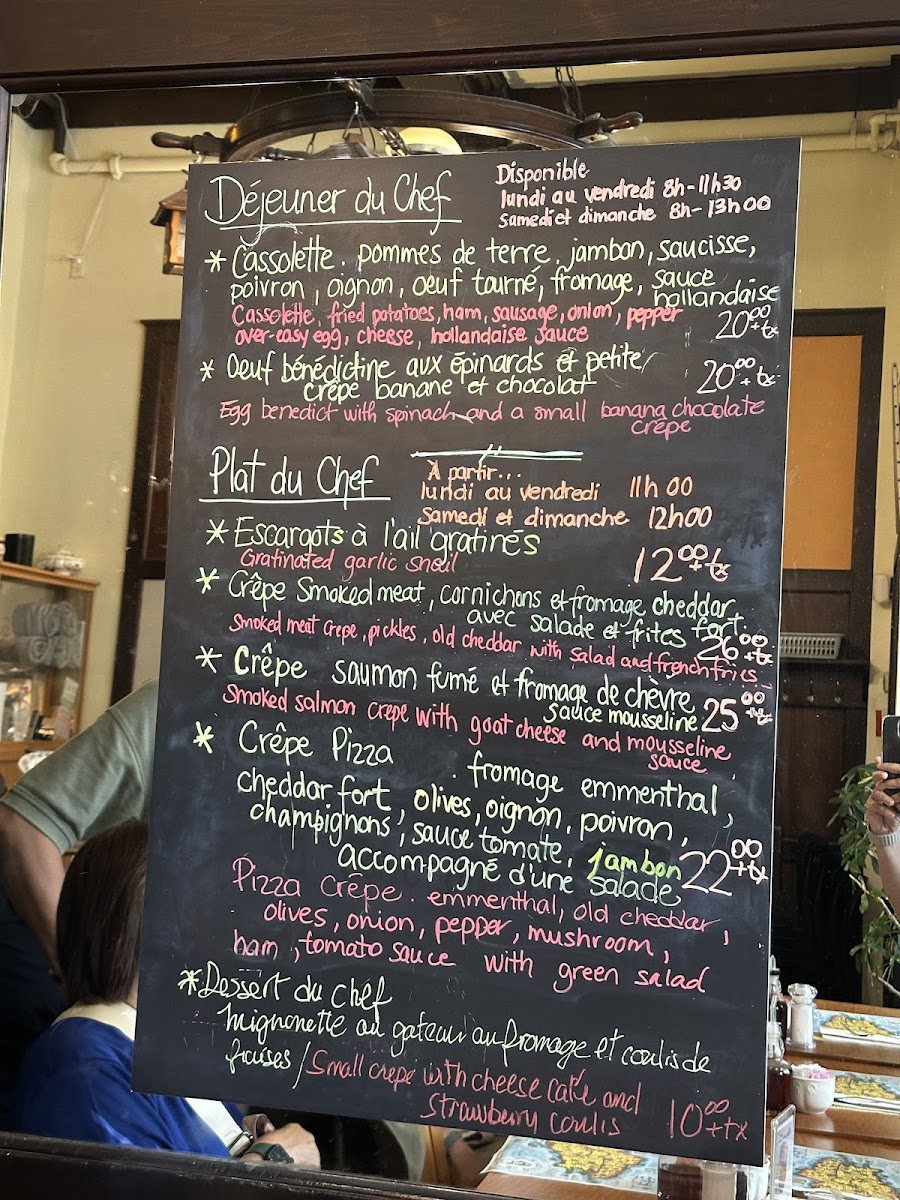 Déjeuner du Chef
Disponible
lundi au vendredi 8h-11h30
samedi et dimanche 8h-13h00
* Cassolette. pommes de terre. jambon, saucisse,
poivron, oignon, oeuf tourné, fromage, sauce
hollandaise
Cassolette, fried potatoes, ham, sausage, onion, pepper
over-easy egg, cheese, hollandaise sauce
20⁰⁰+tx
* Oeuf bénédictine aux épinards et petite
crêpe banane et chocolat
20⁰⁰+tx
Egg benedict with spinach and a small banana chocolate
crêpe
Plat du Chef
À partir...
lundi au vendredi 11h00
Samedi et dimanche 12h00
* Escargots à l'ail gratinés
Gratinated garlic snail
12⁰⁰+tx
* Crêpe Smoked meat, cornichons et fromage cheddar
avec salade et frites fort.
26⁰⁰+tx
Smoked meat crepe, pickles, old cheddar with salad and french fries
* Crêpe saumon fumé et fromage de chèvre
sauce mousseline
25⁰⁰+tx
Smoked salmon crepe with goat cheese and mousseline
sauce
* Crêpe Pizza . fromage emmenthal,
cheddar fort, olives, oignon, poivron,
champignons, sauce tomate, jambon
accompagné d'une salade
22⁰⁰+tx
Pizza crêpe. emmenthal, old cheddar,
olives, onion, pepper, mushroom,
ham, tomato sauce with green salad
* Dessert du chef
Mignonette au gateau au fromage et coulis de
fraises / Small crepe with cheese cake and
strawberry coulis
10⁰⁰+tx